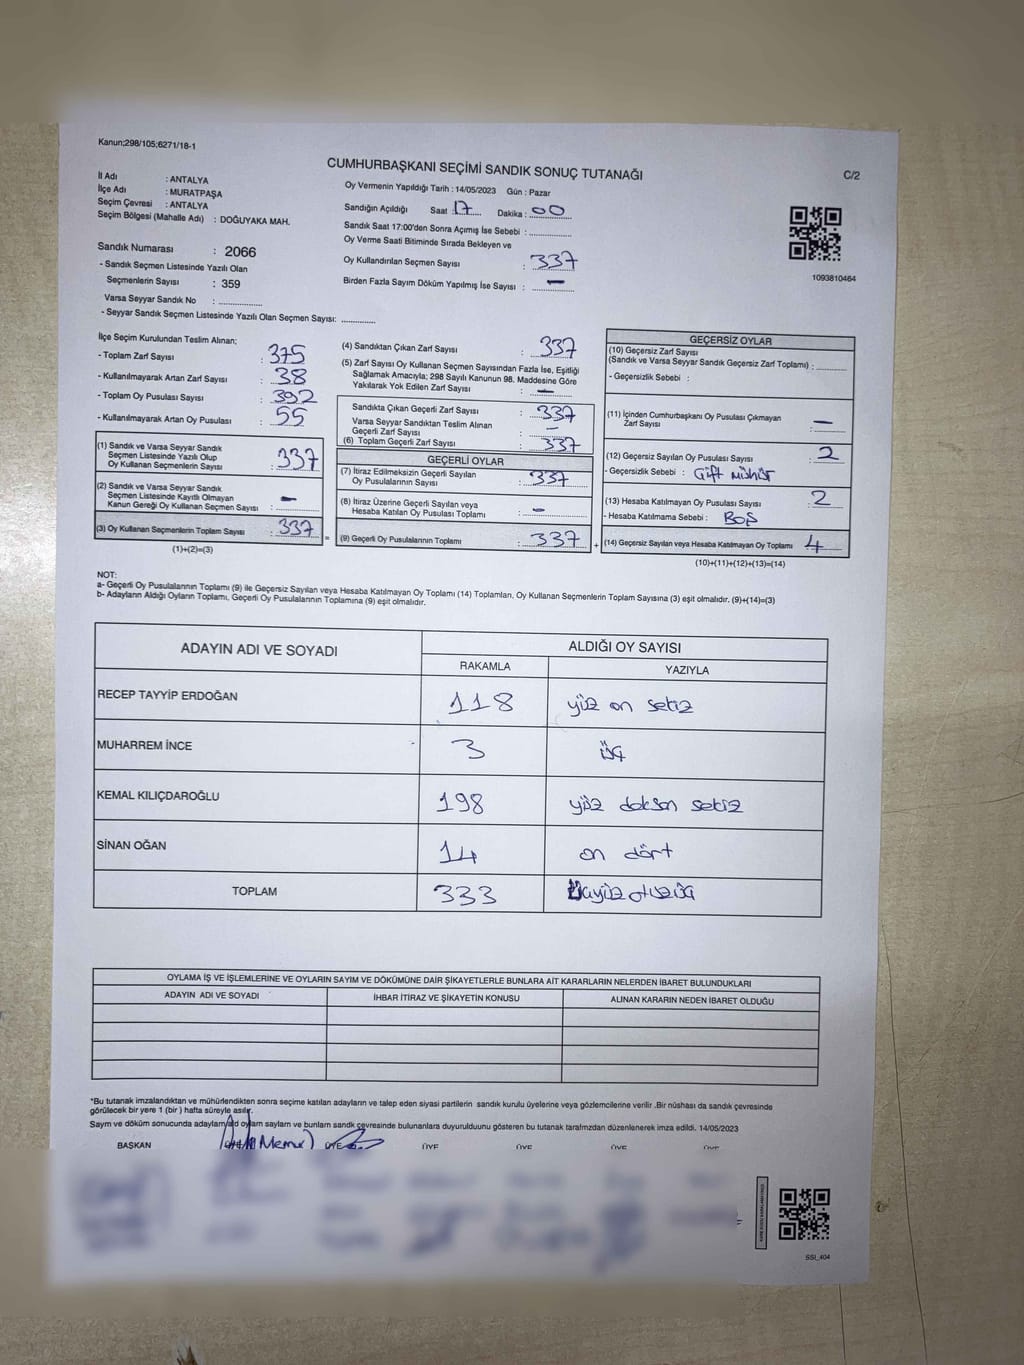 Kanun;298/105;6271/18-1
CUMHURBAŞKANI SEÇİMİ SANDIK SONUÇ TUTANAĞI
C/2
İl Adı : ANTALYA
İlçe Adı : MURATPAŞA
Seçim Çevresi : ANTALYA
Seçim Bölgesi (Mahalle Adı) : DOĞUYAKA MAH.
Sandık Numarası : 2066
- Sandık Seçmen Listesinde Yazılı Olan
Seçmenlerin Sayısı : 359
Varsa Seyyar Sandık No : ..............
- Seyyar Sandık Seçmen Listesinde Yazılı Olan Seçmen Sayısı: ............
Oy Vermenin Yapıldığı Tarih : 14/05/2023 Gün : Pazar
Sandığın Açıldığı Saat : 17 Dakika : 00
Sandık Saat 17:00'den Sonra Açımış İse Sebebi : ..............
Oy Verme Saati Bitiminde Sırada Bekleyen ve
Oy Kullandırılan Seçmen Sayısı : 337
Birden Fazla Sayım Döküm Yapılmış İse Sayısı : -
1093810464
İlçe Seçim Kurulundan Teslim Alınan;
- Toplam Zarf Sayısı : 375
- Kullanılmayarak Artan Zarf Sayısı : 38
- Toplam Oy Pusulası Sayısı : 392
- Kullanılmayarak Artan Oy Pusulası : 55
(1) Sandık ve Varsa Seyyar Sandık
Seçmen Listesinde Yazılı Olup
Oy Kullanan Seçmenlerin Sayısı : 337
(2) Sandık ve Varsa Seyyar Sandık
Seçmen Listesinde Kayıtlı Olmayan
Kanun Gereği Oy Kullanan Seçmen Sayısı : -
(3) Oy Kullanan Seçmenlerin Toplam Sayısı : 337
(1)+(2)=(3)
(4) Sandıktan Çıkan Zarf Sayısı : 337
(5) Zarf Sayısı Oy Kullanan Seçmen Sayısından Fazla İse, Eşitliği
Sağlamak Amacıyla; 298 Sayılı Kanunun 98. Maddesine Göre
Yakılarak Yok Edilen Zarf Sayısı : -
Sandıkta Çıkan Geçerli Zarf Sayısı : 337
Varsa Seyyar Sandıktan Teslim Alınan
Geçerli Zarf Sayısı : -
(6) Toplam Geçerli Zarf Sayısı : 337
GEÇERLİ OYLAR
(7) İtiraz Edilmeksizin Geçerli Sayılan
Oy Pusulalarının Sayısı : 337
(8) İtiraz Üzerine Geçerli Sayılan veya
Hesaba Katılan Oy Pusulası Toplamı : -
(9) Geçerli Oy Pusulalarının Toplamı : 337
GEÇERSİZ OYLAR
(10) Geçersiz Zarf Sayısı
(Sandık ve Varsa Seyyar Sandık Geçersiz Zarf Toplamı) : ..........
- Geçersizlik Sebebi :
(11) İçinden Cumhurbaşkanı Oy Pusulası Çıkmayan
Zarf Sayısı : -
(12) Geçersiz Sayılan Oy Pusulası Sayısı : 2
- Geçersizlik Sebebi : Çift mühür
(13) Hesaba Katılmayan Oy Pusulası Sayısı : 2
- Hesaba Katılmama Sebebi : BOŞ
(14) Geçersiz Sayılan veya Hesaba Katılmayan Oy Toplamı : 4
(10)+(11)+(12)+(13)=(14)
NOT:
a- Geçerli Oy Pusulalarının Toplamı (9) ile Geçersiz Sayılan veya Hesaba Katılmayan Oy Toplamı (14) Toplamları, Oy Kullanan Seçmenlerin Toplam Sayısına (3) eşit olmalıdır. (9)+(14)=(3)
b- Adayların Aldığı Oyların Toplamı, Geçerli Oy Pusulalarının Toplamına (9) eşit olmalıdır.
ADAYIN ADI VE SOYADI
ALDIĞI OY SAYISI
RAKAMLA YAZIYLA
RECEP TAYYİP ERDOĞAN 118 yüz on sekiz
MUHARREM İNCE 3 üç
KEMAL KILIÇDAROĞLU 198 yüz doksan sekiz
SİNAN OĞAN 14 on dört
TOPLAM 333 üçyüz otuzüç
OYLAMA İŞ VE İŞLEMLERİNE VE OYLARIN SAYIM VE DÖKÜMÜNE DAİR ŞİKAYETLERLE BUNLARA AİT KARARLARIN NELERDEN İBARET BULUNDUKLARI
ADAYIN ADI VE SOYADI İHBAR İTİRAZ VE ŞİKAYETİN KONUSU ALINAN KARARIN NEDEN İBARET OLDUĞU
*Bu tutanak imzalandıktan ve mühürlendikten sonra seçime katılan adayların ve talep eden siyasi partilerin sandık kurulu üyelerine veya gözlemcilerine verilir .Bir nüshası da sandık çevresinde
görülecek bir yere 1 (bir ) hafta süreyle asılır.
Sayım ve döküm sonucunda adayların oyların sayıları ve bunların sandık çevresinde bulunanlara duyurulduunu gösteren bu tutanak tarafımızdan düzenlenerek imza edildi. 14/05/2023
BAŞKAN (Memur) ÜYE ÜYE ÜYE ÜYE ÜYE
SSİ_404